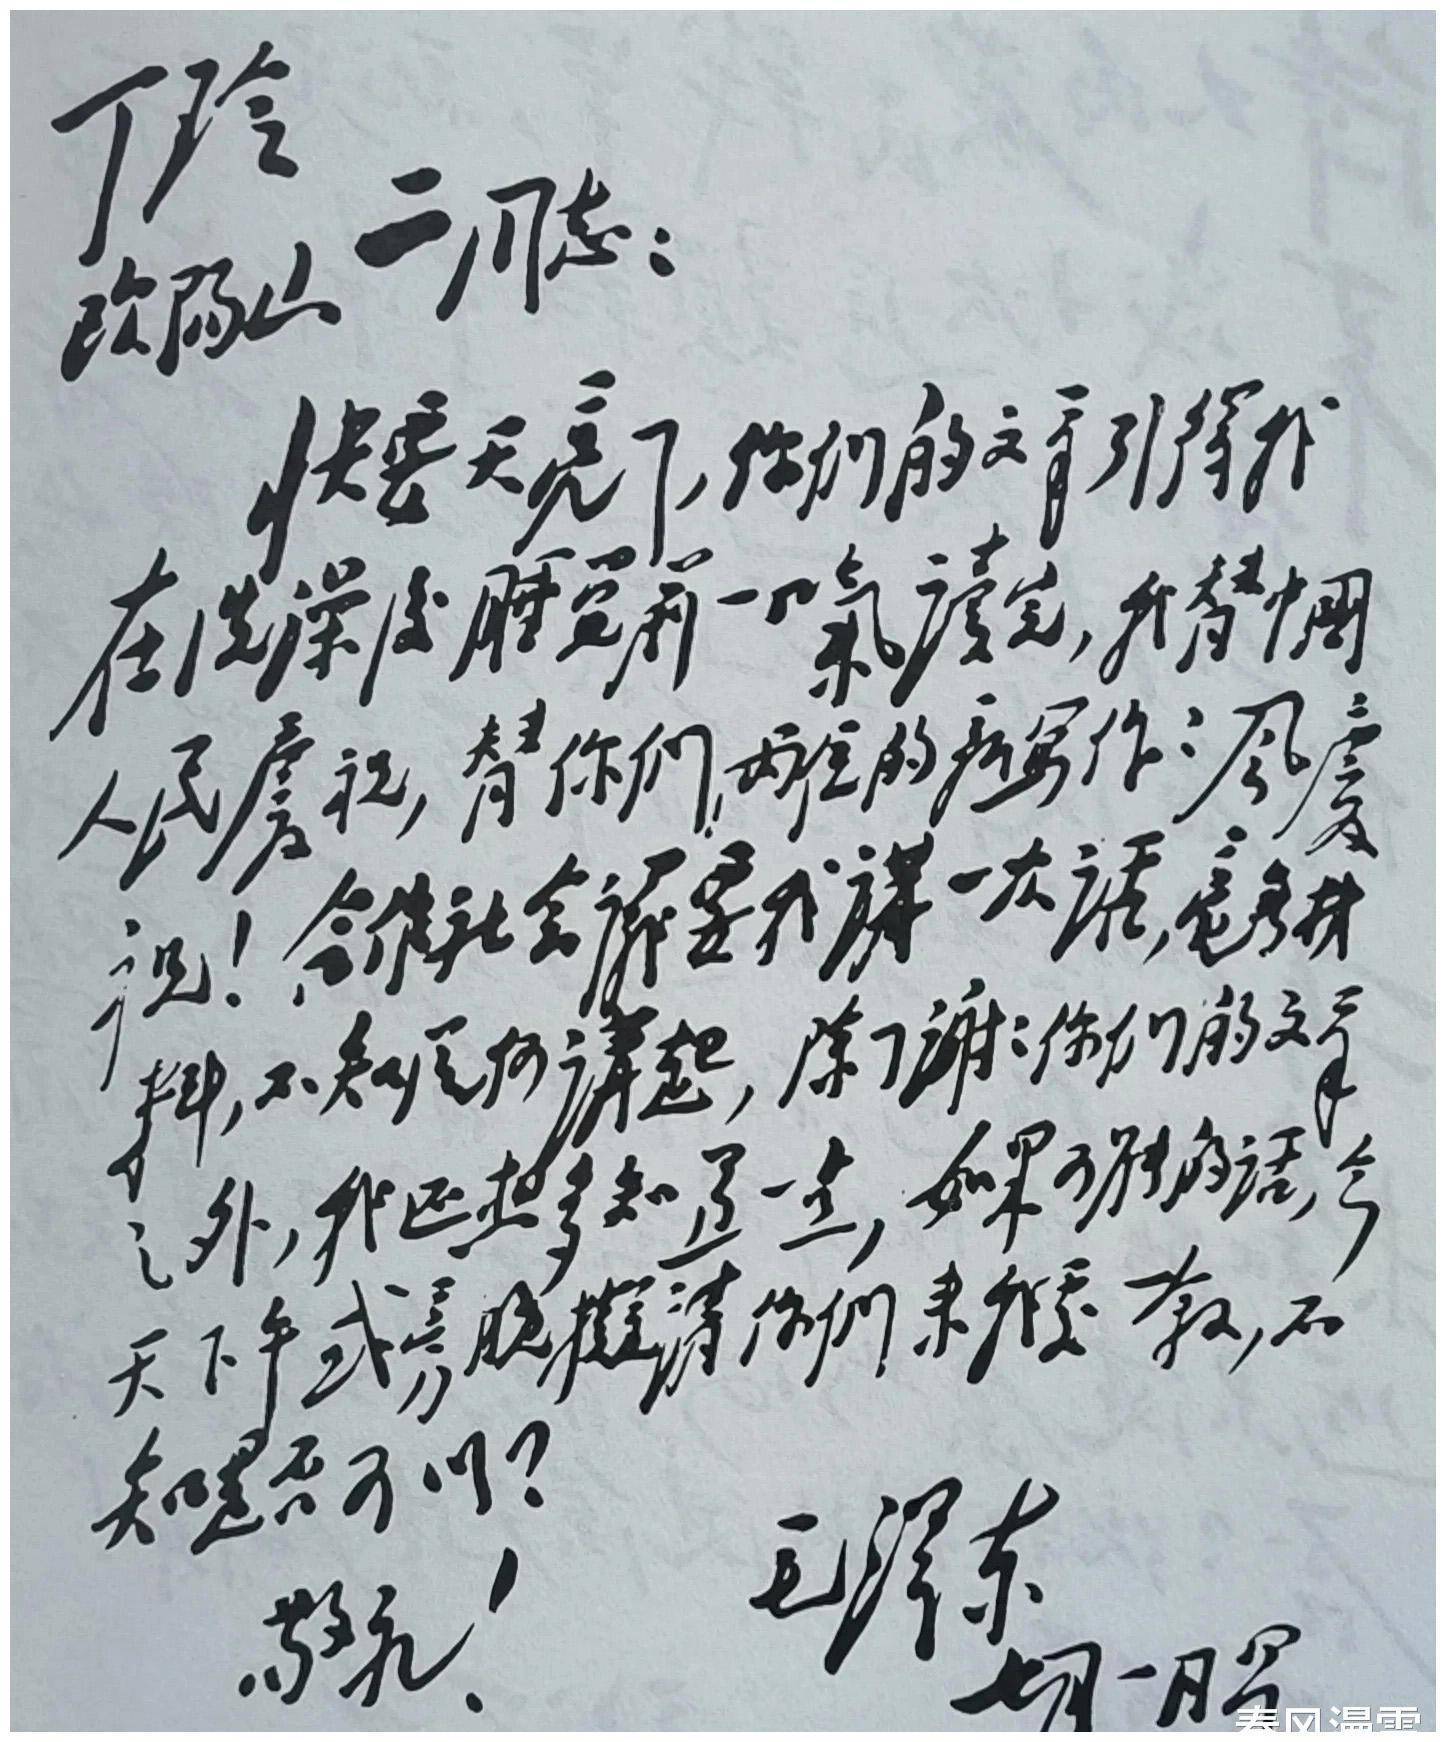 丁玲
二同志：
欧阳山
快要天亮了，你们的文章引得我
在洗澡后睡觉前一口气讀完，我替中國
人民慶祝，替你们两位的新写作：风慶
祝！合作社会議要我講一次話，毫無材
料，不知從何講起，除了謝：你们的文章
之外，我还想多知道一点，如果可能的話，今
天下午或傍晚擬請你们来我處一敘，不
知是否可以？
敬礼！
毛澤东
七月一日早
春风温雪